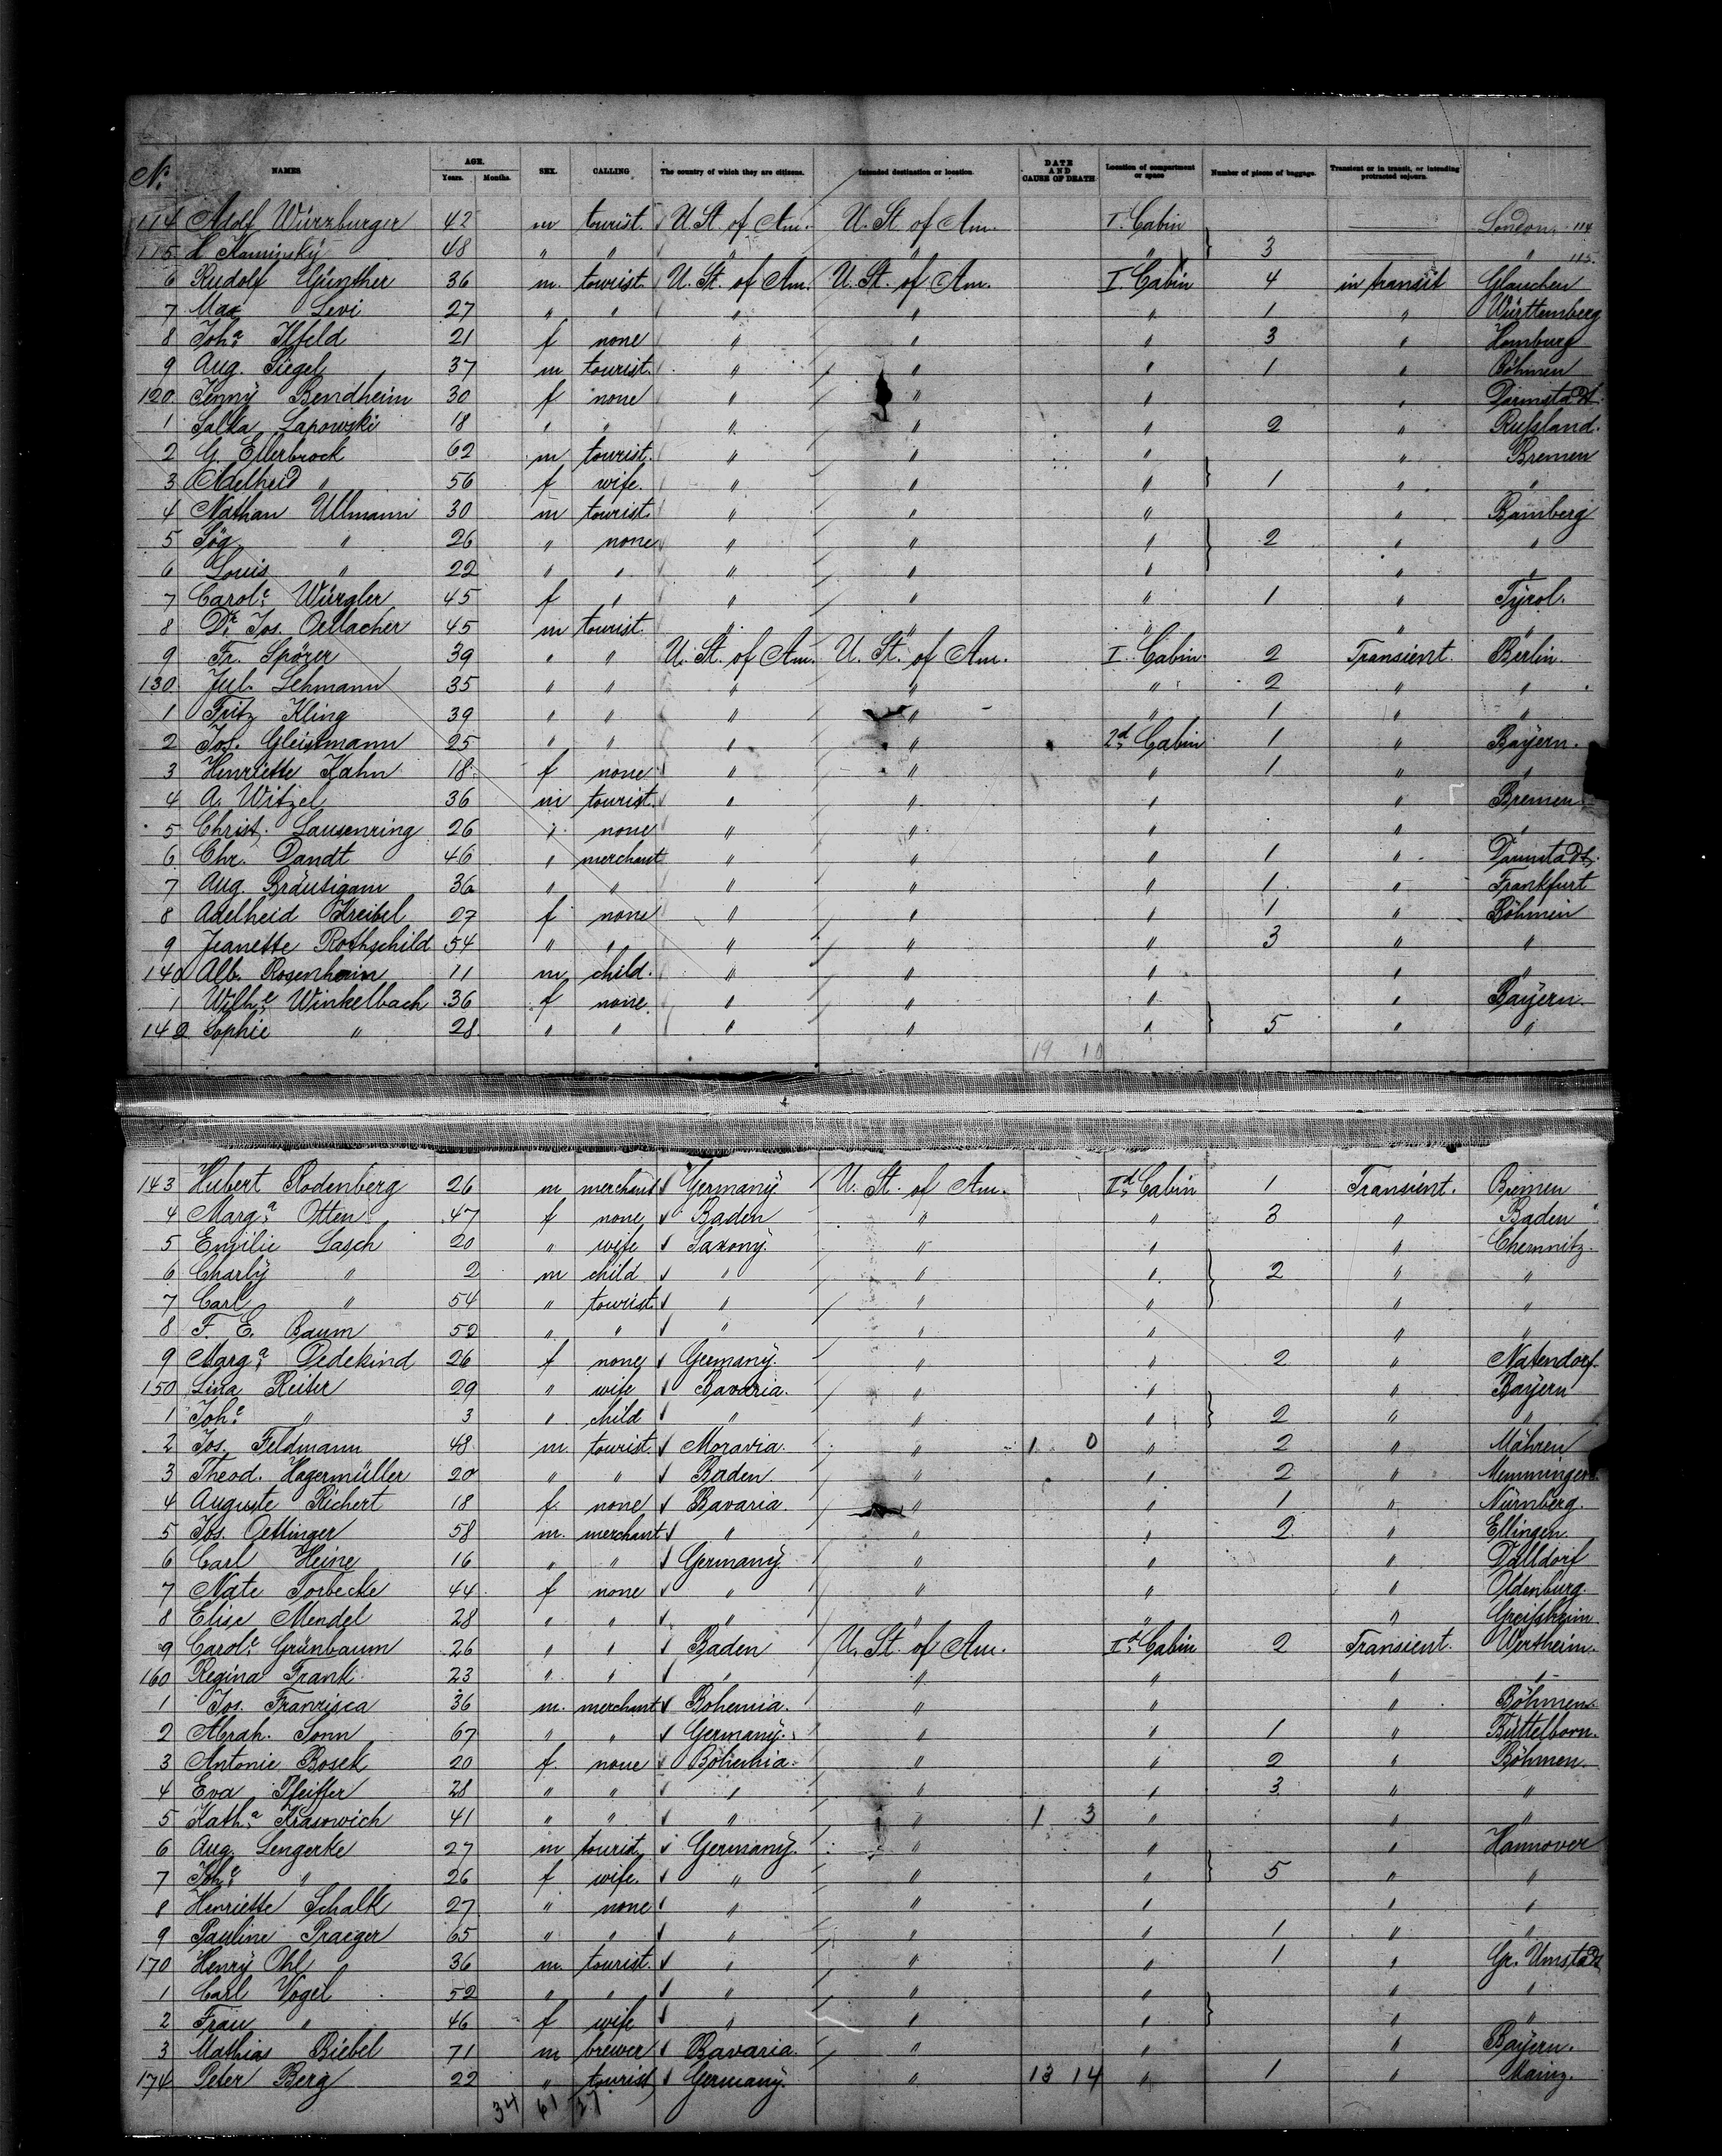 No. NAMES AGE. Years. Months. SEX. CALLING The country of which they are citizens. Intended destination or location. DATE AND CAUSE OF DEATH Location of compartment or space Number of pieces of baggage. Transient or in transit, or intending protracted sojourn.
114 Adolf Würzburger 42 m tourist. U. St. of Am. U. St. of Am. I. Cabin London. 114
115 Kaminsky 48 " " " " " 3 " 115.
6 Rudolf Günther 36 m. tourist. U. St. of Am. U. St. of Am. I. Cabin 4 in transit Glauchen
7 Max Levi 27 " " " " " 1 " Württemberg
8 Joh.a Ilfeld 21 f none " " " 3 " Homburg
9 Aug. Siegel 37 m tourist. " " " 1 " Böhmen
120 Jenny Bendheim 30 f none " " " " Darmstadt.
1 Salka Lapowski 18 " " " " " 2 " Rußland.
2 G. Ellerbrock 62 m tourist. " " " " Bremen
3 Adelheid " 56 f wife. " " " 1 " "
4 Nathan Ullmann 30 m tourist. " " " " Bamberg
5 " 26 " none " " " 2 " "
6 Louis " 22 " " " " " " "
7 Carol.e Würgler 45 f " " " " 1 " Tyrol.
8 Dr. Jos. Oellacher 45 m tourist. " " " " "
9 Fr. Spörer 39 " " U. St. of Am. U. St. of Am. I. Cabin. 2 Transient. Berlin.
130 Jul. Lehmann 35 " " " " " 2 " "
1 Fritz Kling 39 " " " " " 1 " "
2 Jos. Gleissmann 25 " " " " 2d Cabin 1 " Bayern.
3 Henriette Kahn 18. f none " " " 1 " "
4 A. Witzel 36 m tourist. " " " " Bremen.
5 Christ. Lausenring 26 " none " " " " "
6 Chr. Dandt 46 " merchant " " " 1 " Darmstadt.
7 Aug. Bräutigam 36 " " " " " 1. " Frankfurt
8 Adelheid Kreibel 27 f none " " " 1 " Böhmen
9 Jeanette Rothschild 54 " " " " " 3 " "
140 Alb. Rosenheim 11 m child. " " " " "
1 Wilh.e Winkelbach 36 f none. " " " " Bayern.
142 Sophie " 28. " " " " " 5 " "
19 10
143 Hubert Rodenberg 26 m merchant Germany. U. St. of Am. IId Cabin 1 Transient. Bremen
4 Marg.a Otten 47 f none Baden " " 3 " Baden
5 Emilie Lasch 20 " wife Saxony. " " " Chemnitz.
6 Charly " 2 m child " " " 2 " "
7 Carl " 54 " tourist. " " " " "
8 F. E. Baum 52 " " " " " " "
9 Marg.a Dedekind 26 f none Germany. " " 2 " Natendorf.
150 Lina Reiser 29 " wife Bavaria. " " " Bayern
1 Joh.e " 3 " child " " " 2 " "
2 Jos. Feldmann 48. m. tourist Moravia. " 1 0 " 2 " Mähren
3 Theod. Hagermüller 20 " " Baden. " " 2 " Memmingen.
4 Auguste Richert 18 f none Bavaria. " " 1 " Nürnberg.
5 Jos. Oettinger 58 m. merchant " " " 2 " Ellingen.
6 Carl Heine 16 " " Germany. " " " Dalldorf
7 Nate Torbecke 44. f none " " " " Oldenburg.
8 Elise Mendel 28 " " " " " "
9 Carol.e Grünbaum 26 " " Baden U. St. of Am. IId Cabin 2 Transient. Wertheim.
160 Regina Frank 23 " " " " " " "
1 Jos. Franzisca 36 m. merchant Bohemia. " " " Böhmen.
2 Abrah. Sonn 67 " " Germany. " " 1 " Büttelborn.
3 Antonie Bosek 20 f. none Bohemia. " " 2 " Böhmen.
4 Eva Pfeiffer 28 " " " " " 3. " "
5 Kath.a Krasowich 41 " " " " 1 3 " " "
6 Aug. Lengerke 27 m tourist. Germany. " " " Hannover
7 Joh.e " 26 f wife. " " " 5 " "
8 Henriette Schalk 27. " none " " " " "
9 Pauline Praeger 65 " " " " " 1 " "
170 Henry Ohl 36 m. tourist. " " " 1 " Gr. Umstadt
1 Carl Vogel 52 " " " " " " "
2 Frau " 46 f wife " " " " "
3 Mathias Biebel 71 m brewer Bavaria. " " " Bayern.
174 Peter Berg 22 " tourist Germany. " 13 14 " 1 " Mainz.
34 61 27